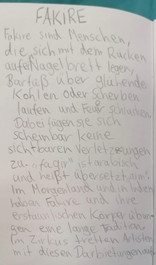 FAKIRE
Fakire sind Menschen,
die sich mit dem Rücken
auf Nagelbrett legen,
Barfuß über glühende
Kohlen oder Scherben
laufen und Feuer
Dabei fügen sie sich
scheinbar keine
sichtbaren Verletzungen
zu. "faqir" ist arabisch
und heißt übersetzt arm!
Im Morgenland und in Indien
haben Fakire und ihre
Körper
gen eine lange Tradition.
Im Zirkus treten Artisten
mit diesen Darbietungen auf.